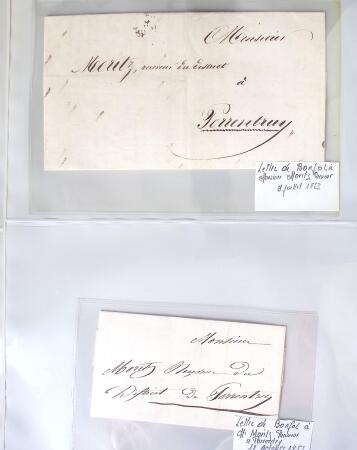 Monsieur
Moritz, receveur du district
à
Porrentruy
Lettre de Bonfol à
Monsieur Moritz Receveur
juillet 1853
Monsieur
Moritz Receveur du
District de Porrentruy
Lettre de Bonfol à
Mr Moritz Receveur
à Porrentruy
octobre